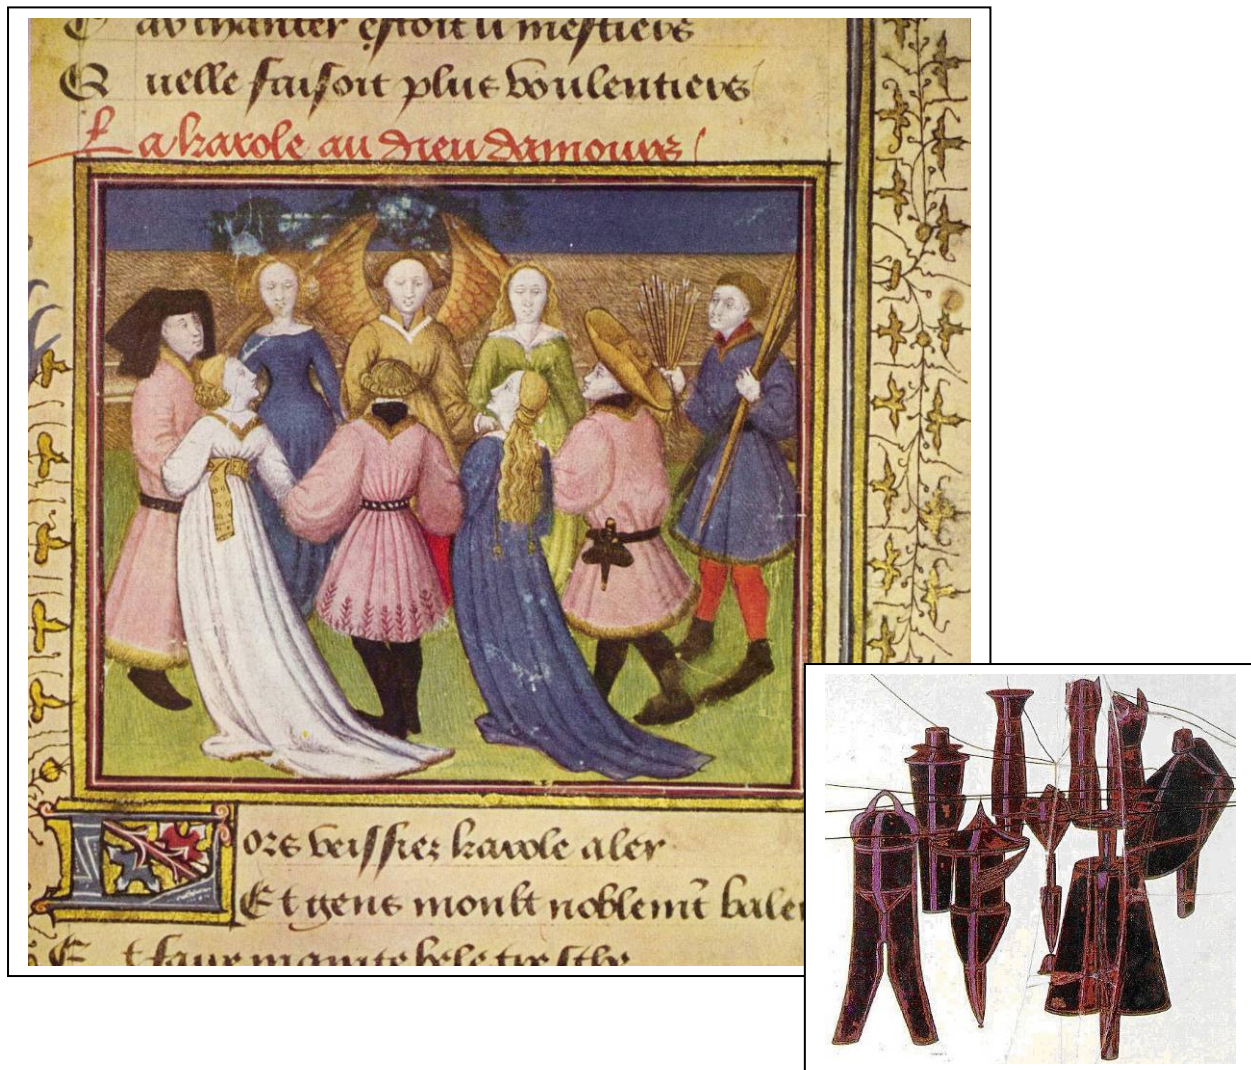 au chanter estoit li mestiers
Quelle faisoit plus voulentiers
La karole au dieu damours
Lors veissiez karole aler
Et gens moult noblemẽt baler
Et faire mainte bele tresche